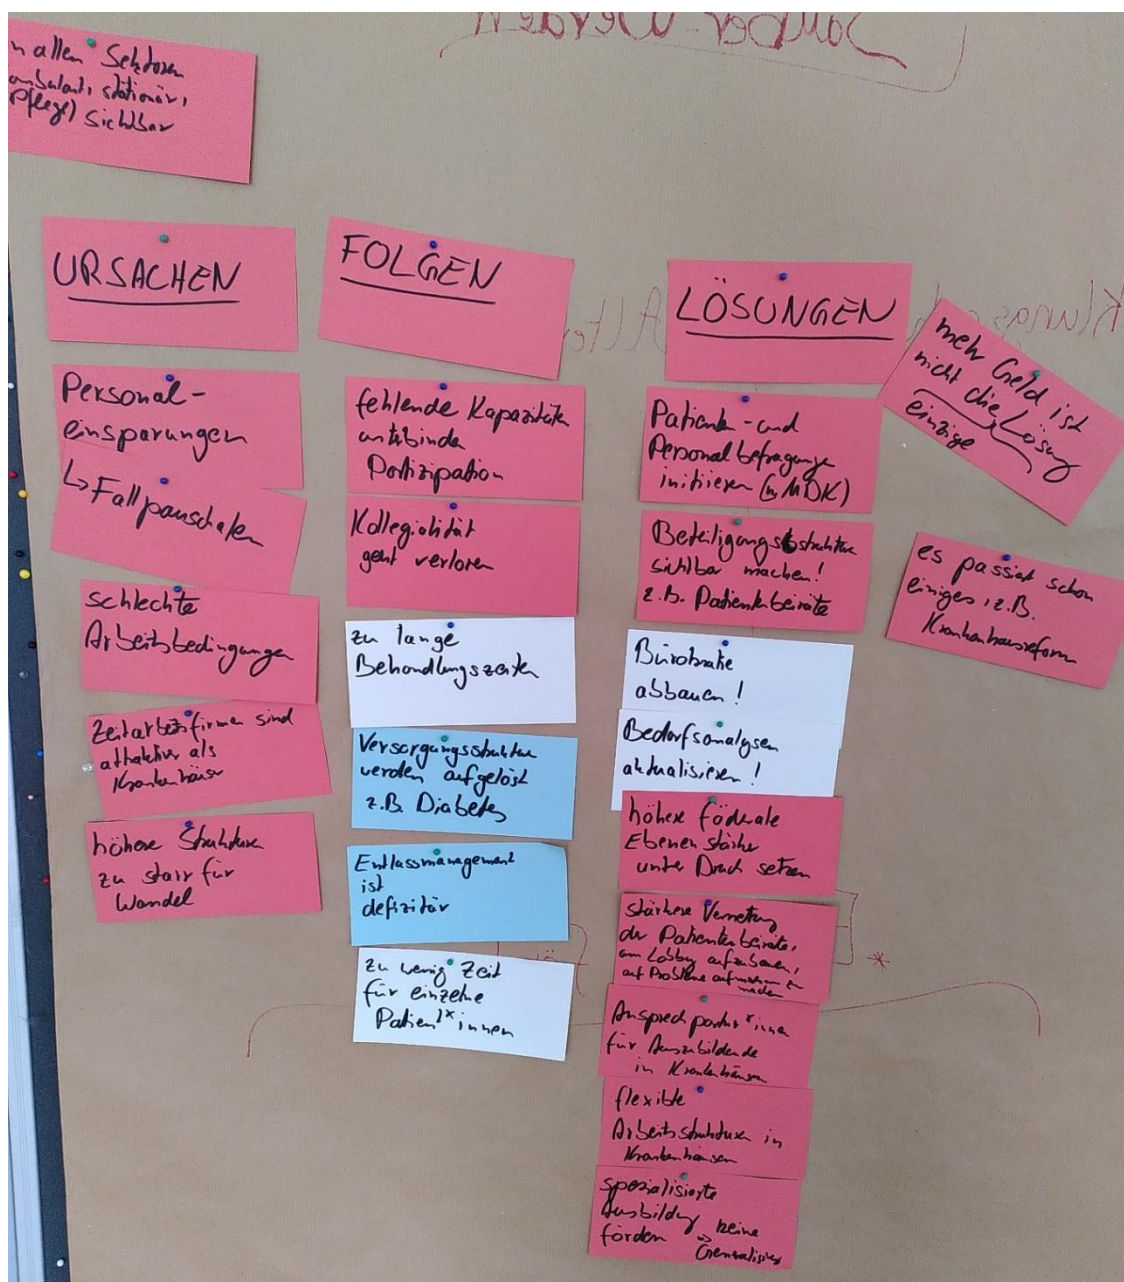 n allen Sektoren
ambulant, stationär,
Pflege) sichtbar
URSACHEN
Personal-
einsparungen
↳ Fallpauschalen
schlechte
Arbeitsbedingungen
Zeitarbeitsfirmen sind
attraktiver als
Krankenhäuser
höhere Strukturen
zu starr für
Wandel
FOLGEN
fehlende Kapazitäten
unterbinden
Partizipation
Kollegialität
geht verloren
zu lange
Behandlungszeiten
Versorgungsstrukturen
werden aufgelöst
z.B. Diabetes
Entlassmanagement
ist
defizitär
zu wenig Zeit
für einzelne
Patient*innen
LÖSUNGEN
Patienten- und
Personalbefragungen
initiieren (MDK)
Beteiligungsstrukturen
sichtbar machen!
z.B. Patientenbeiräte
Bürokratie
abbauen!
Bedarfsanalysen
aktualisieren!
höhere föderale
Ebenen stärker
unter Druck setzen
stärkere Vernetzung
der Patientenbeiräte,
um Lobby aufzubauen,
auf Probleme aufmerksam zu
machen
Ansprechpartner*innen
für Auszubildende
in Krankenhäusern
flexible
Arbeitsstrukturen in
Krankenhäusern
spezialisierte
Ausbildung
fördern ⇒ keine
Generalisierung
mehr Geld ist
nicht die Lösung
einzige
es passiert schon
einiges, z.B.
Krankenhausreform
Sauber-werden
*